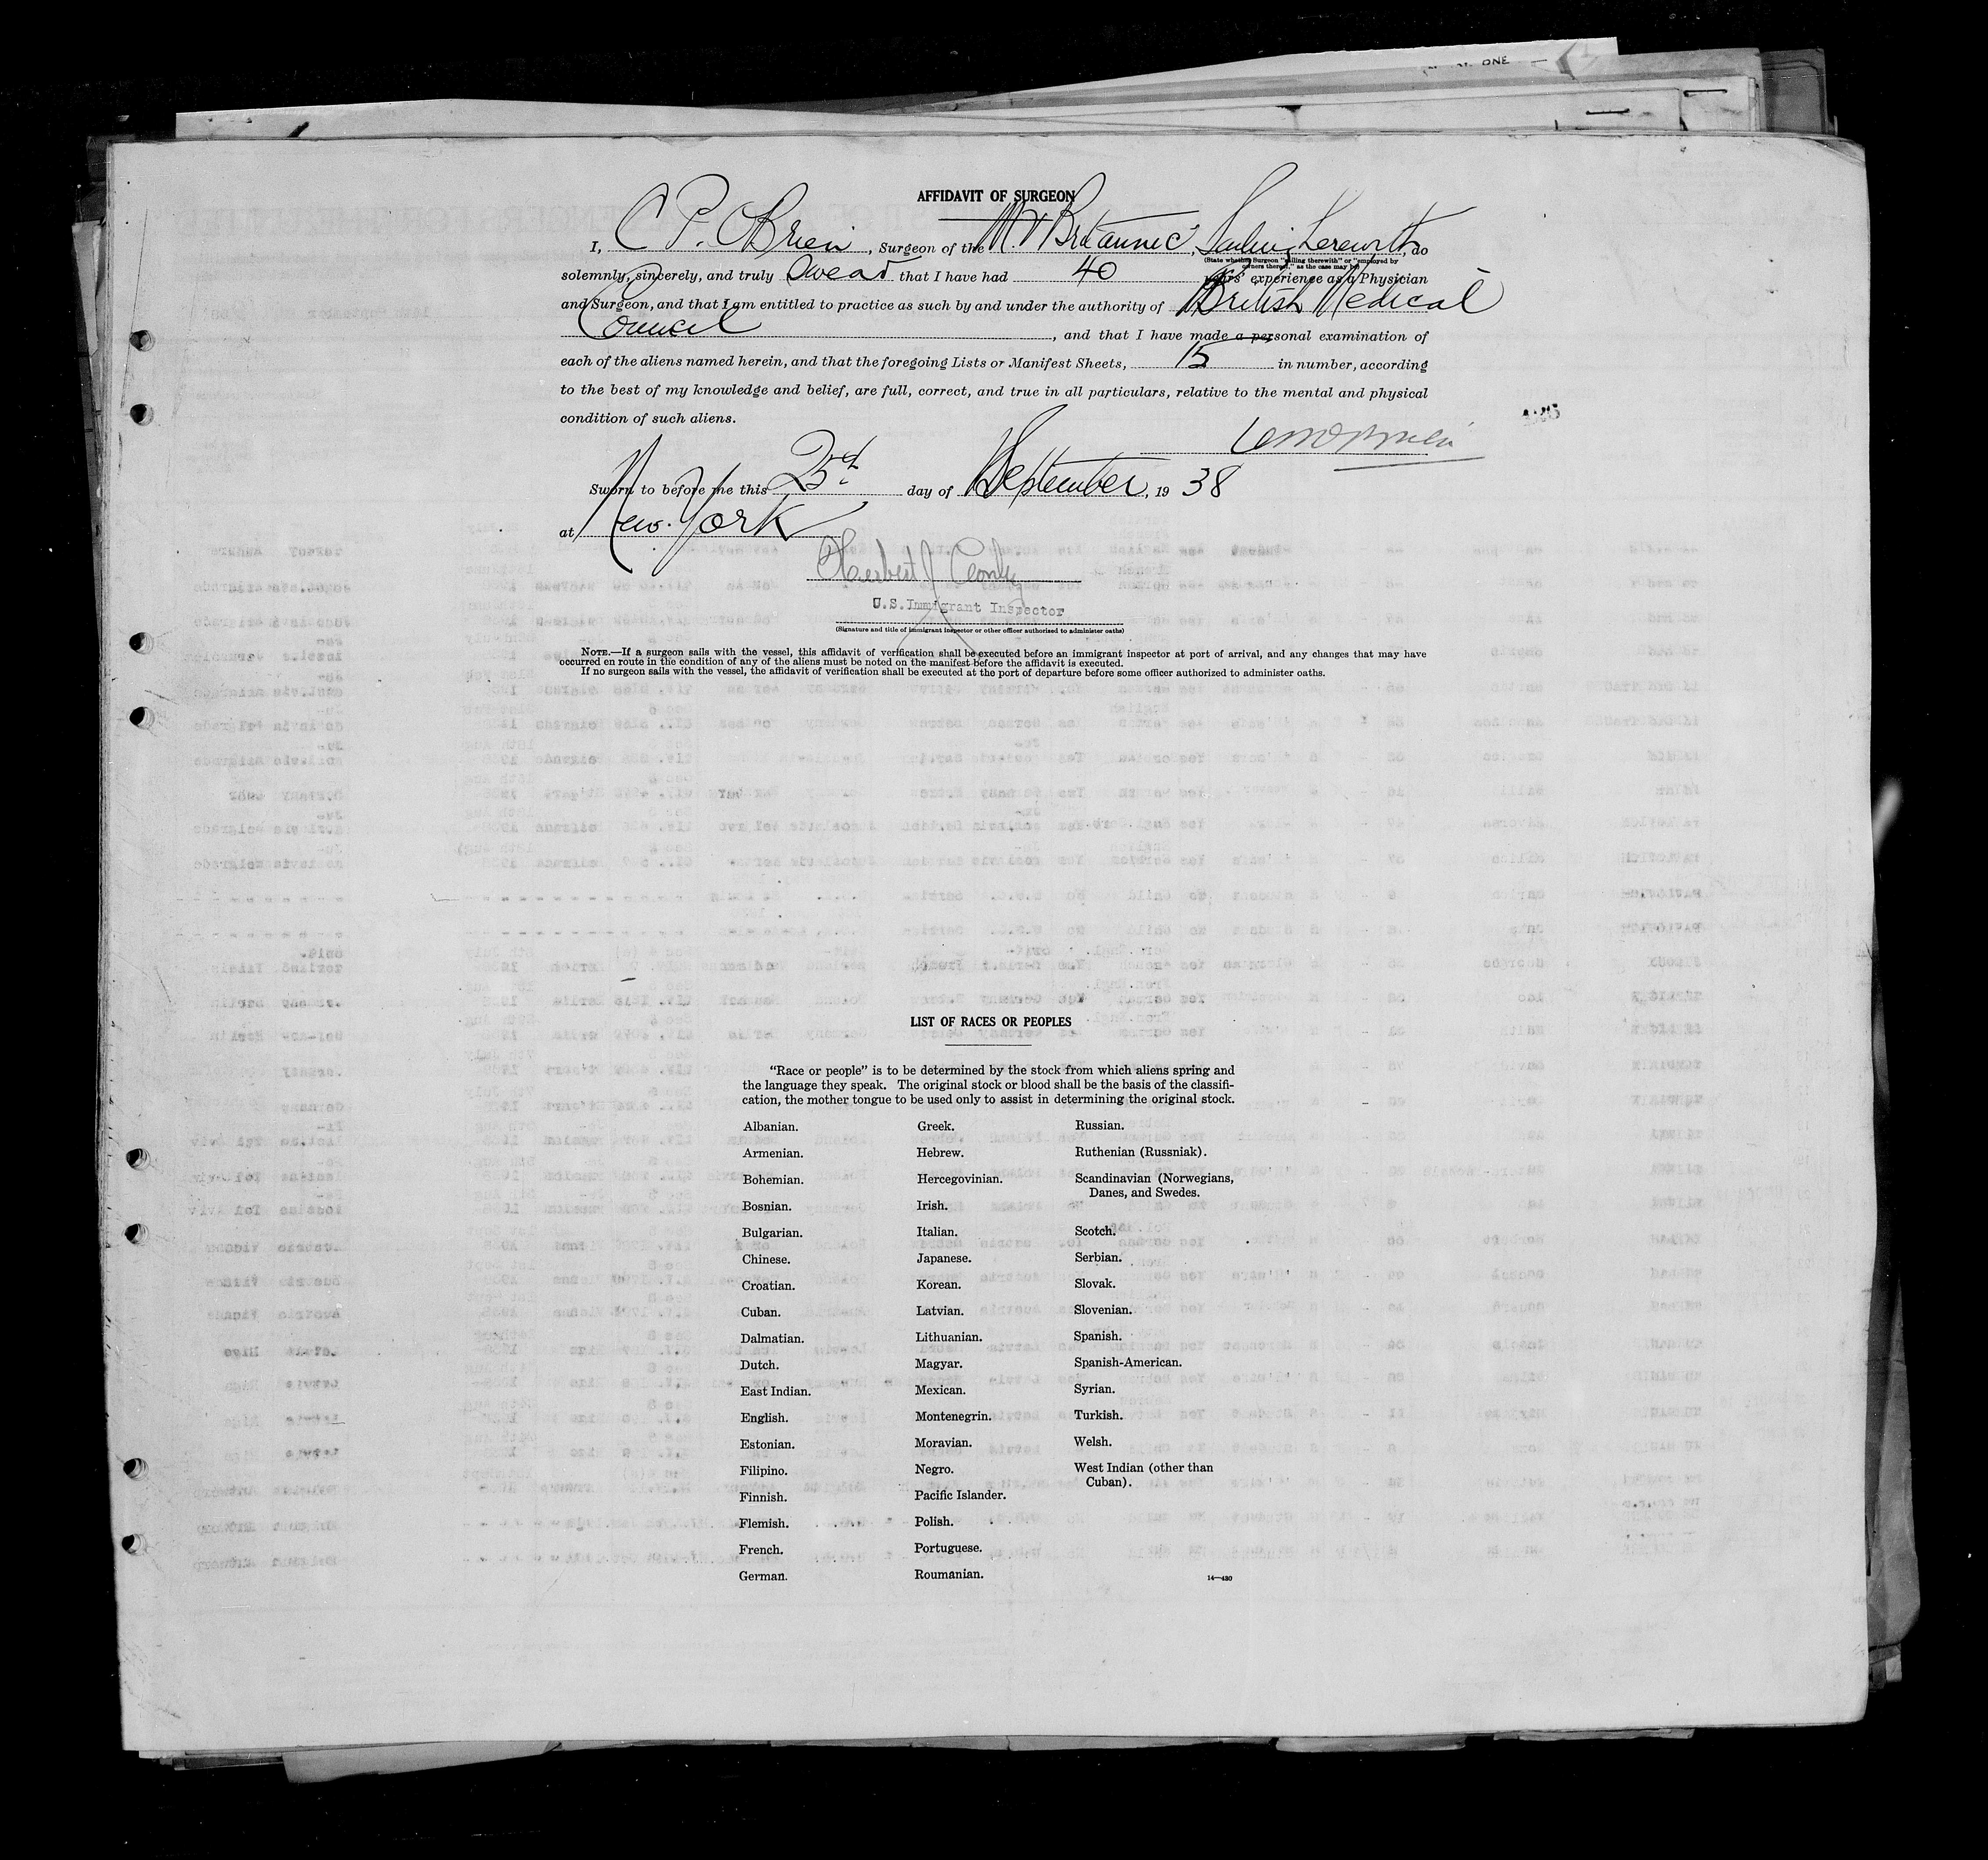 ONE
AFFIDAVIT OF SURGEON
I, C P. OBrien, Surgeon of the M.V Britannic, Sailing therewith, do
(State whether Surgeon "sailing therewith" or "employed by
owners thereof," as the case may be)
solemnly, sincerely, and truly Swear that I have had 40 years' experience as a Physician
and Surgeon, and that I am entitled to practice as such by and under the authority of British Medical
Council, and that I have made a personal examination of
each of the aliens named herein, and that the foregoing Lists or Manifest Sheets, 15 in number, according
to the best of my knowledge and belief, are full, correct, and true in all particulars, relative to the mental and physical
condition of such aliens.
Sworn to before me this 25th day of September, 1938
at New York
Herbert J
U.S. Immigrant Inspector
(Signature and title of immigrant inspector or other officer authorized to administer oaths)
NOTE.—If a surgeon sails with the vessel, this affidavit of verification shall be executed before an immigrant inspector at port of arrival, and any changes that may have
occurred en route in the condition of any of the aliens must be noted on the manifest before the affidavit is executed.
If no surgeon sails with the vessel, the affidavit of verification shall be executed at the port of departure before some officer authorized to administer oaths.
LIST OF RACES OR PEOPLES
"Race or people" is to be determined by the stock from which aliens spring and
the language they speak. The original stock or blood shall be the basis of the classifi-
cation, the mother tongue to be used only to assist in determining the original stock.
Albanian.
Armenian.
Bohemian.
Bosnian.
Bulgarian.
Chinese.
Croatian.
Cuban.
Dalmatian.
Dutch.
East Indian.
English.
Estonian.
Filipino.
Finnish.
Flemish.
French.
German.
Greek.
Hebrew.
Hercegovinian.
Irish.
Italian.
Japanese.
Korean.
Latvian.
Lithuanian.
Magyar.
Mexican.
Montenegrin.
Moravian.
Negro.
Pacific Islander.
Polish.
Portuguese.
Roumanian.
Russian.
Ruthenian (Russniak).
Scandinavian (Norwegians,
Danes, and Swedes.
Scotch.
Serbian.
Slovak.
Slovenian.
Spanish.
Spanish-American.
Syrian.
Turkish.
Welsh.
West Indian (other than
Cuban).
14—430